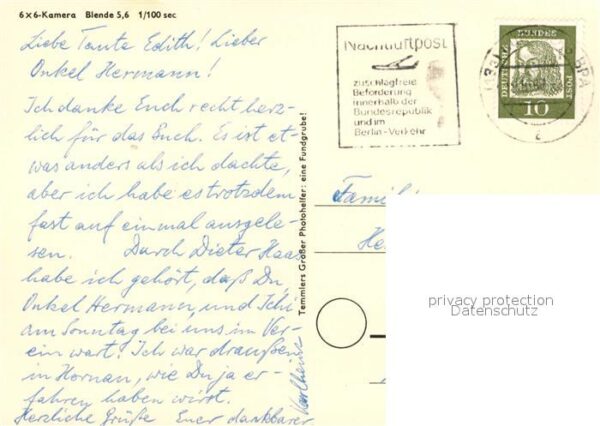 6x6-Kamera Blende 5,6 1/100 sec
Liebe Tante Edith! Lieber
Onkel Hermann!
Ich danke Euch recht herz-
lich für das Buch. Es ist et-
was anders als ich dachte,
aber ich habe es trotzdem
fast auf einmal ausgele-
sen. Durch Dieter Haas
habe ich gehört, daß Du,
Onkel Hermann, und Ichi
am Sonntag bei uns im Ver-
ein wart. Ich war draußen
in Hornau, wie Du ja er-
fahren haben wirst.
Herzliche Grüße Euer dankbarer
Karlheinz
Temmlers Großer Photohelfer: eine Fundgrube!
Nachtluftpost
zuschlagfreie
Beförderung
innerhalb der
Bundesrepublik
und im
Berlin-Verkehr
DEUTSCHE BUNDESPOST
10
Famili
He
privacy protection
Datenschutz